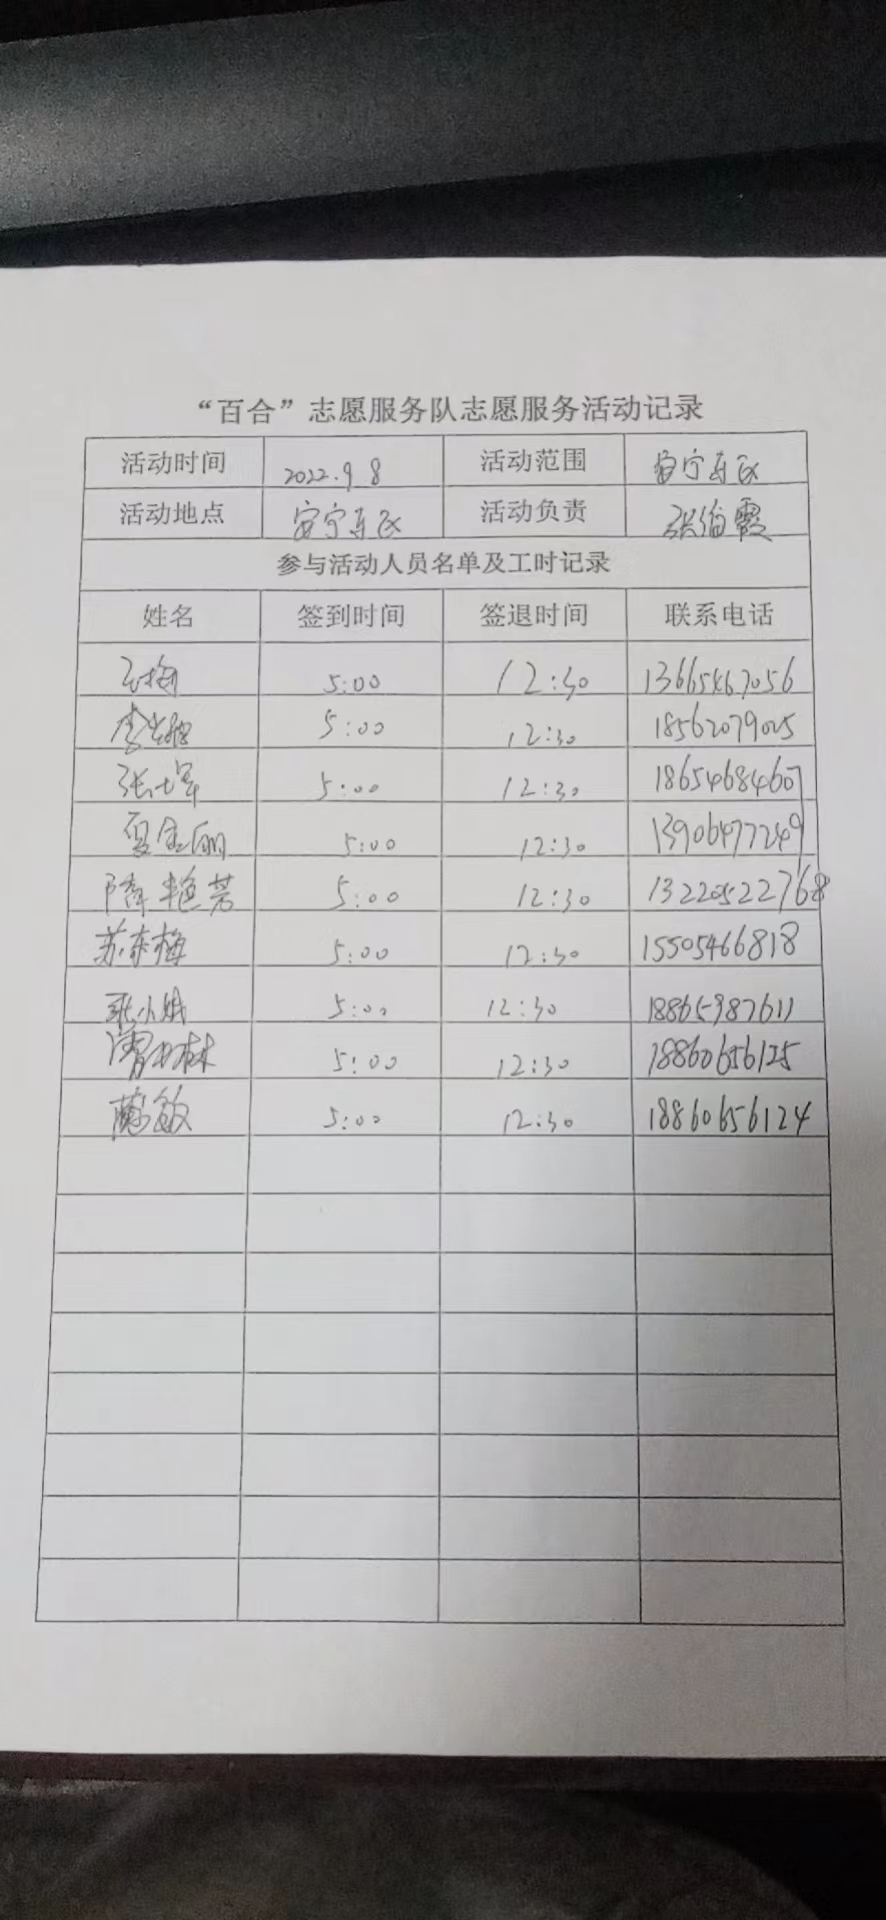 “百合”志愿服务队志愿服务活动记录
活动时间 2022.9 8 活动范围 安宁社区
活动地点 安宁社区 活动负责
参与活动人员名单及工时记录
姓名 签到时间 签退时间 联系电话
5:00 12:30 13665467056
5:00 12:30 18562079025
5:00 12:30 18654684607
夏金丽 5:00 12:30 13906477249
隋艳芳 5:00 12:30 13220522768
苏东梅 5:00 12:30 15505466818
张小娥 5:00 12:30 18865987611
5:00 12:30 18860656125
5:00 12:30 18860656124